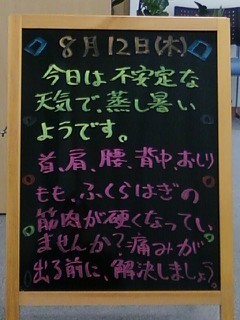 8月12日(木)
今日は不安定な
天気で、蒸し暑い
ようです。
首、肩、腰、背中、おしり
もも、ふくらはぎの
筋肉が硬くなってい
ませんか?痛みが
出る前に、解決しましょう。